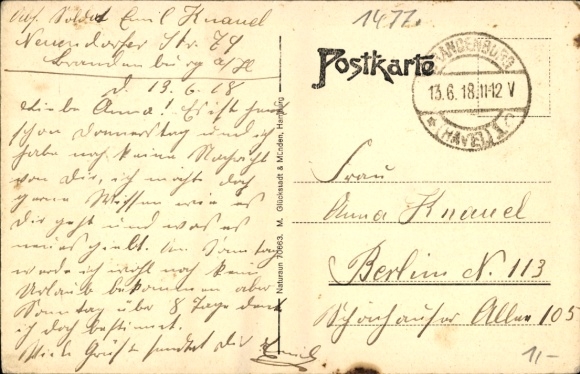 Abs. Soldat Emil Knauel
Neuendorfer Str. 79
Brandenburg a/H
d. 13.6.18
Liebe Anna! Es ist heut
schon Donnerstag und ich
habe noch keine Nachricht
von Dir, ich möchte doch
gerne Wissen wie es
Dir geht und was es
neues giebt. Am Sonntag
werde ich wohl noch kein
Urlaub bekommen aber
Sonntag über 8 Tage denk
ich doch bestimmt.
Viele Grüße sendet Dir Emil
Naturaun 70663. M. Glückstadt & Münden, Hamburg
1477.
Postkarte
BRANDENBURG
13.6.18.11-12 V
(HAVEL)
Frau
Anna Knauel
Berlin N. 113
Schönhauser Allee 105
1,-